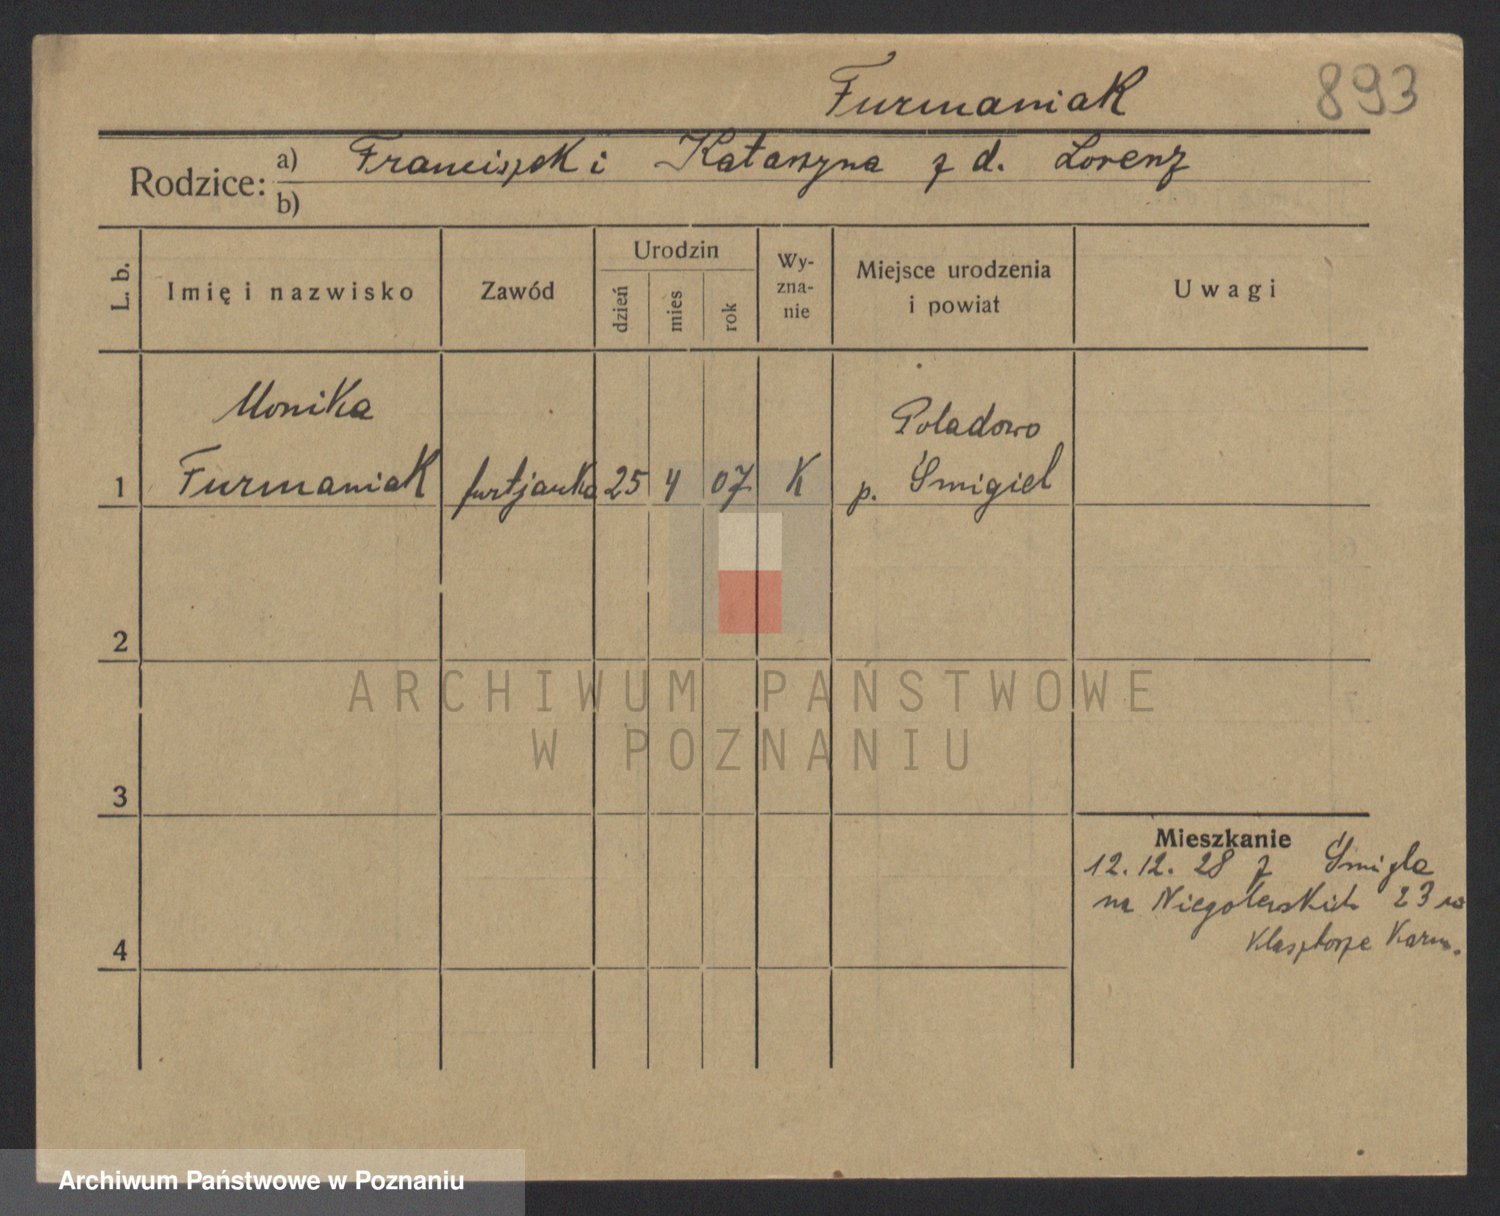 Furmaniak 893
Rodzice: a) Franciszek i Katarzyna z d. Lorenz
b)
L. b. Imię i nazwisko Zawód Urodzin dzień mies rok Wy-zna-nie Miejsce urodzenia i powiat Uwagi
Monika Poladowo
1 Furmaniak furtjanka 25 4 07 K p. Śmigiel
2
ARCHIWUM PAŃSTWOWE
W POZNANIU
3
Mieszkanie
12.12. 28 z Śmigla
na Niegolewskich 23 w
4 Klasztorze Karm.
Archiwum Państwowe w Poznaniu